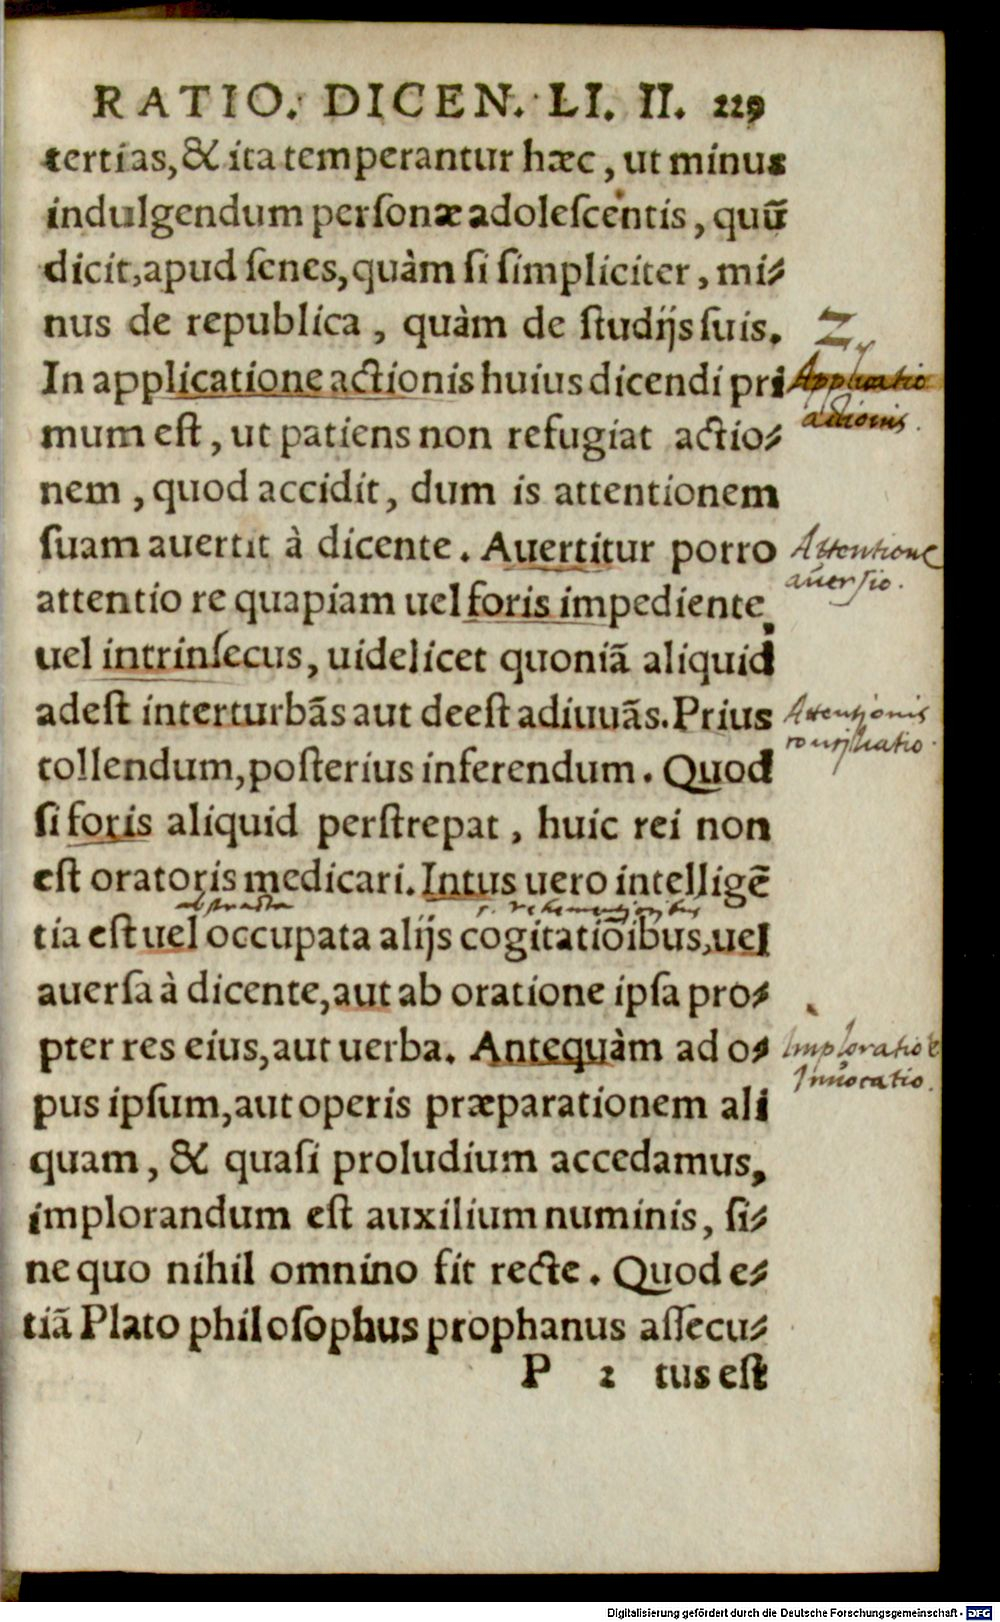 RATIO. DICEN. LI. II. 229
tertias, & ita temperantur hæc, ut minus
indulgendum personæ adolescentis, quũ
dicit, apud senes, quàm si simpliciter, mi⸗
nus de republica, quàm de studijs suis.
Z.
In applicatione actionis huius dicendi pri
Applicatio
mum est, ut patiens non refugiat actio⸗
actionis.
nem, quod accidit, dum is attentionem
suam auertit à dicente. Auertitur porro
Attentione
auersio.
attentio re quapiam uel foris impediente,
uel intrinsecus, uidelicet quoniã aliquid
adest interturbãs aut deest adiuuãs. Prius
Attentionis
tollendum, posterius inferendum. Quod
si foris aliquid perstrepat, huic rei non
est oratoris medicari. Intus uero intelligẽ
abstracta
tia est uel occupata alijs cogitatiõibus, uel
auersa à dicente, aut ab oratione ipsa pro⸗
pter res eius, aut uerba. Antequàm ad o⸗
Imploratio &
Inuocatio.
pus ipsum, aut operis præparationem ali
quam, & quasi proludium accedamus,
implorandum est auxilium numinis, si⸗
ne quo nihil omnino fit recte. Quod e⸗
tiã Plato philosophus prophanus assecu⸗
P 2 tus est
Digitalisierung gefördert durch die Deutsche Forschungsgemeinschaft - DFG